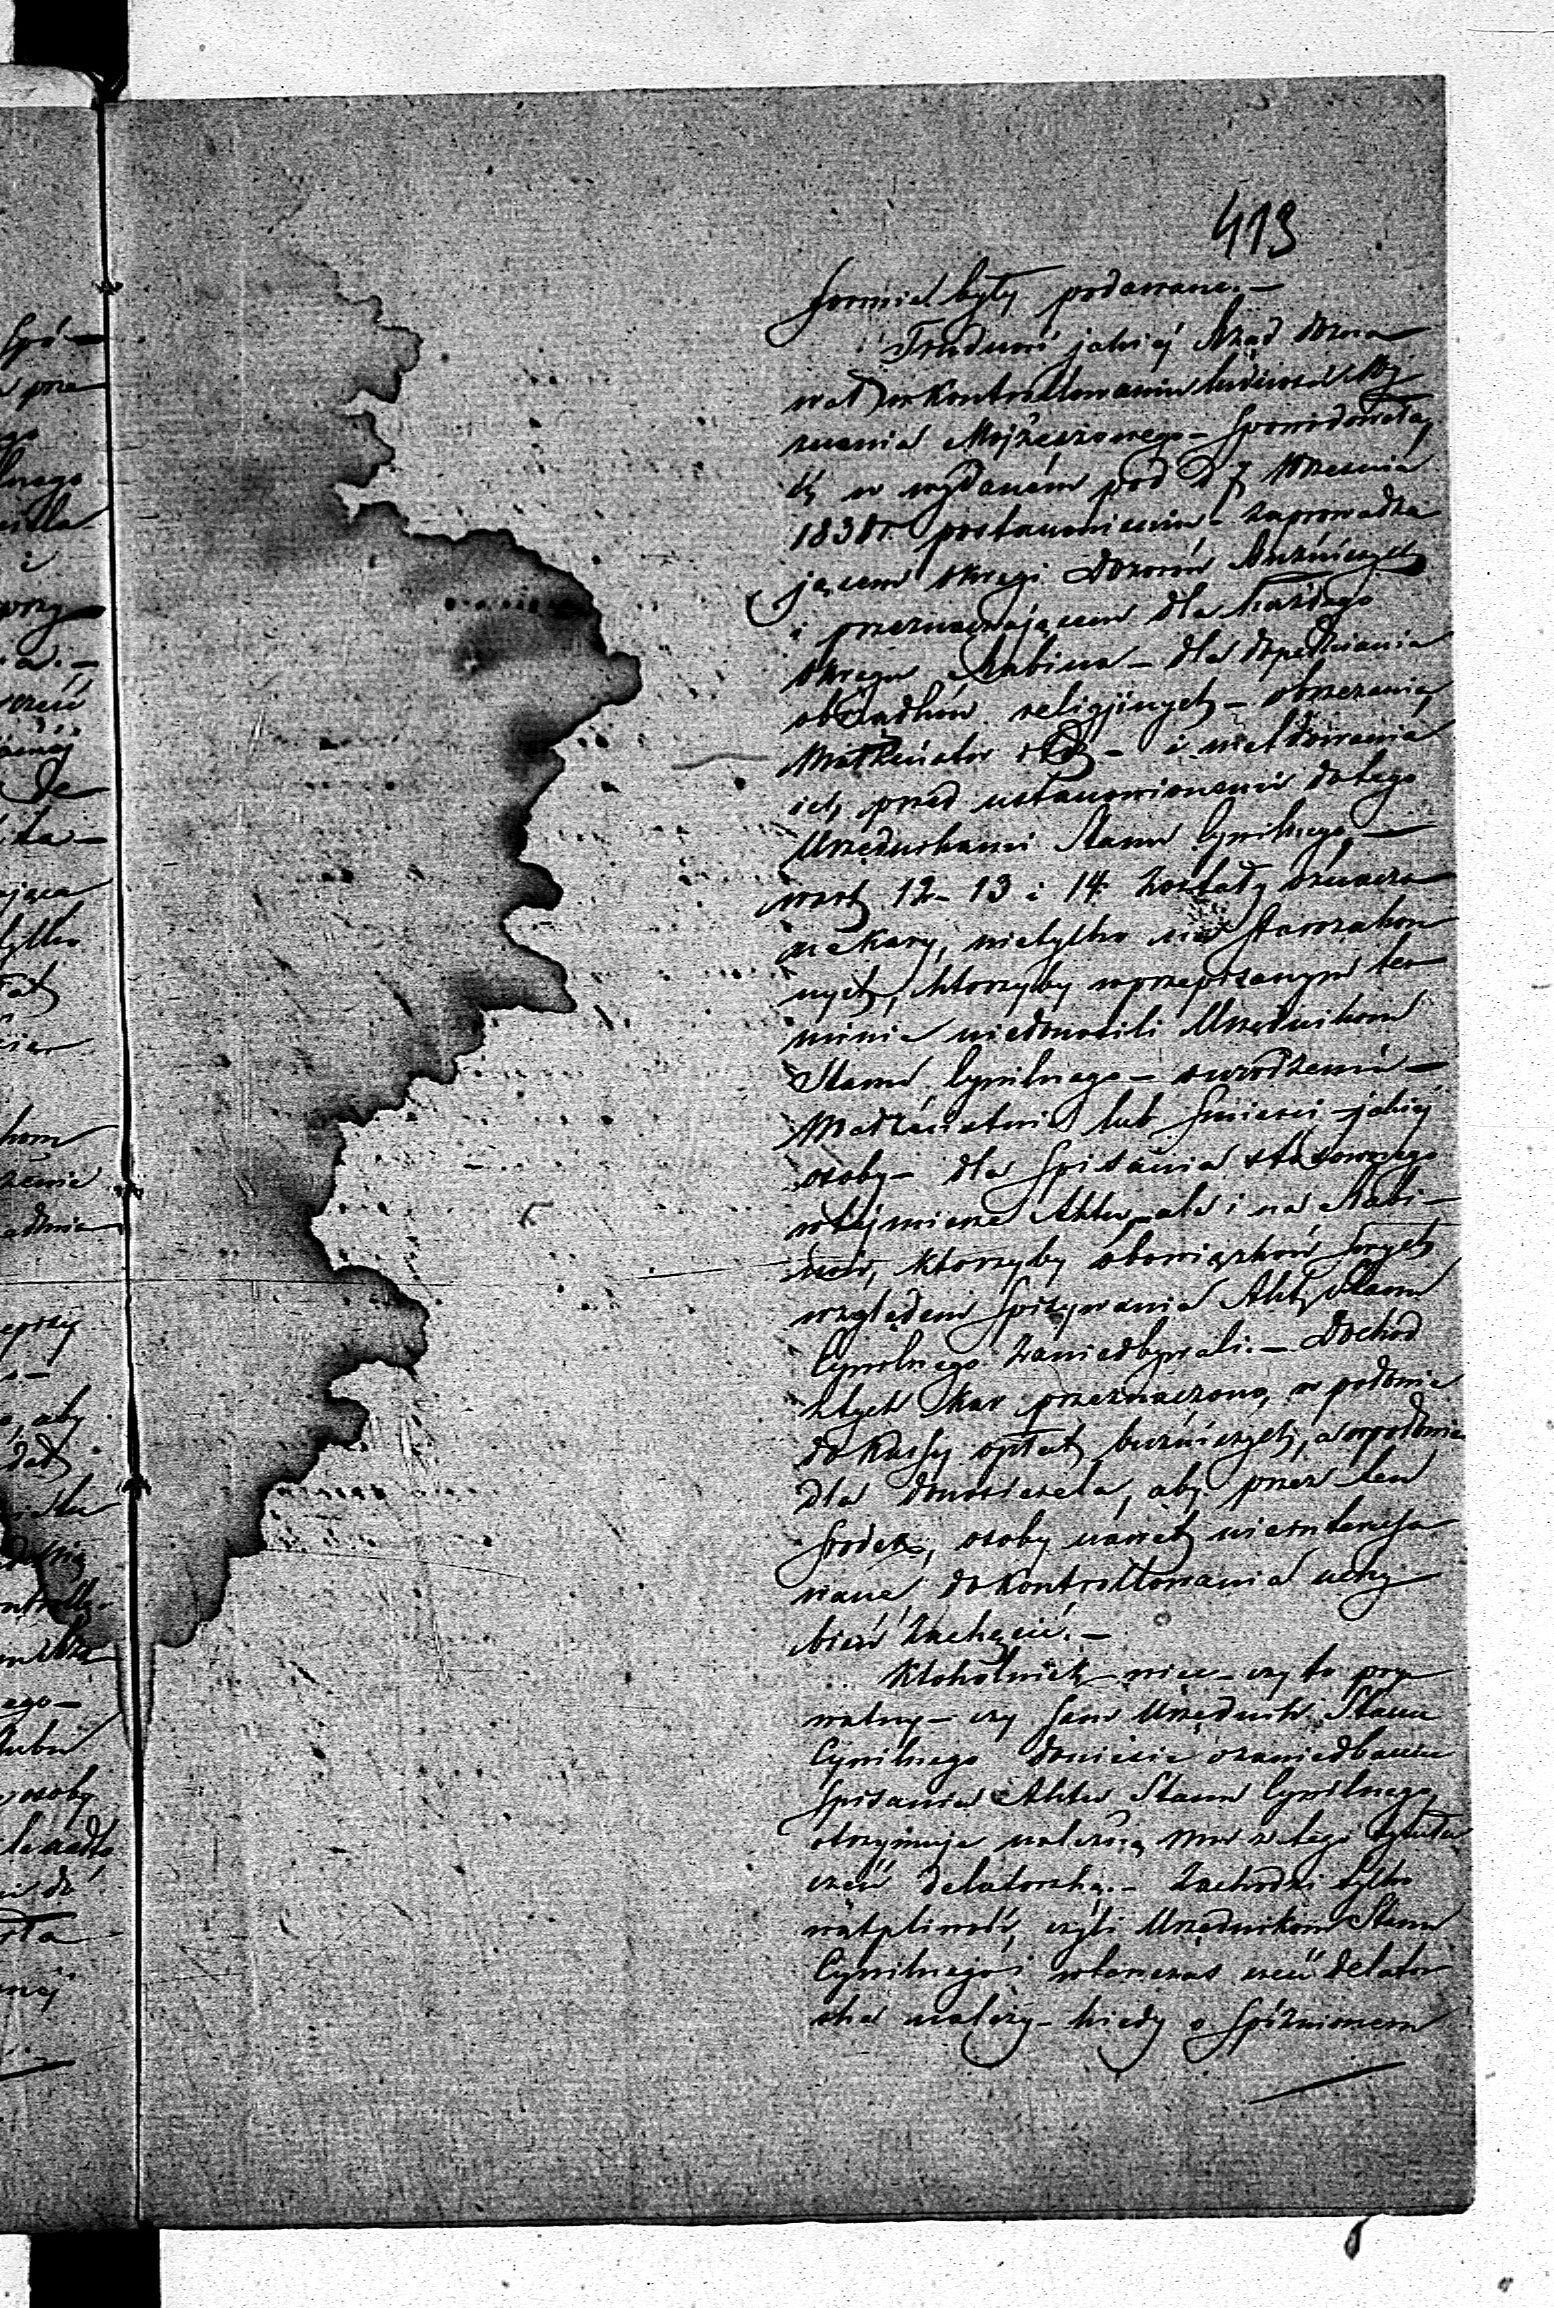 413
formie były podawane. —
Trudność jakiéj Rząd dozna
wał w kontrollowaniu ludności Wy
znania Mojżeszowego — spowodowała,
iż w wydaném pod d 7 Września
1830 r. postanowieniu — zaprowadza
jącem Okręgi Dozorów Bużniczych
i przeznaczającem dla każdego
Okręgu Rabina — dla dopełniania
obrządków religijnych — obrzezania,
Małżeństw itd — i meldowania
ich, przed ustanowionemi do tego
Urzędnikami Stanu Cywilnego, —
w art 12 — 13 i 14 zostały oznaczo
ne kary, nietylko na Starozakon
nych, którzyby w przepisanym ter
minie niedonosili Urzędnikom
Stanu Cywilnego — o urodzeniu —
Małżeństwie lub śmierci jakiéj
osoby — dla spisania stosownego
w téj mierze Aktu, ale i na Rabi —
nów, którzyby obowiązków swych
względem spisywania Akt Stanu
Cywilnego zaniedbywali. — Dochód
z tych kar przeznaczono, w połowie
do kassy opłat bużniczych, a w połowie
dla donosiciela, aby przez ten
środek, osoby nawet nieinteresso
wane do kontrollowania uchy
bień zachęcić. —
Ktokolwiek więc — czy to pry
watny — czy sam Urzędnik Stanu
Cywilnego doniesie o zaniedbaniu
spisania Aktu Stanu Cywilnego,
otrzymuje należną mu z tego tytułu
część delatorską. — Zachodzi tylko
wątpliwość, czyli Urzędnikom Stanu
Cywilnego i wówczas część delator
ska należy — kiedy o spóźnionem